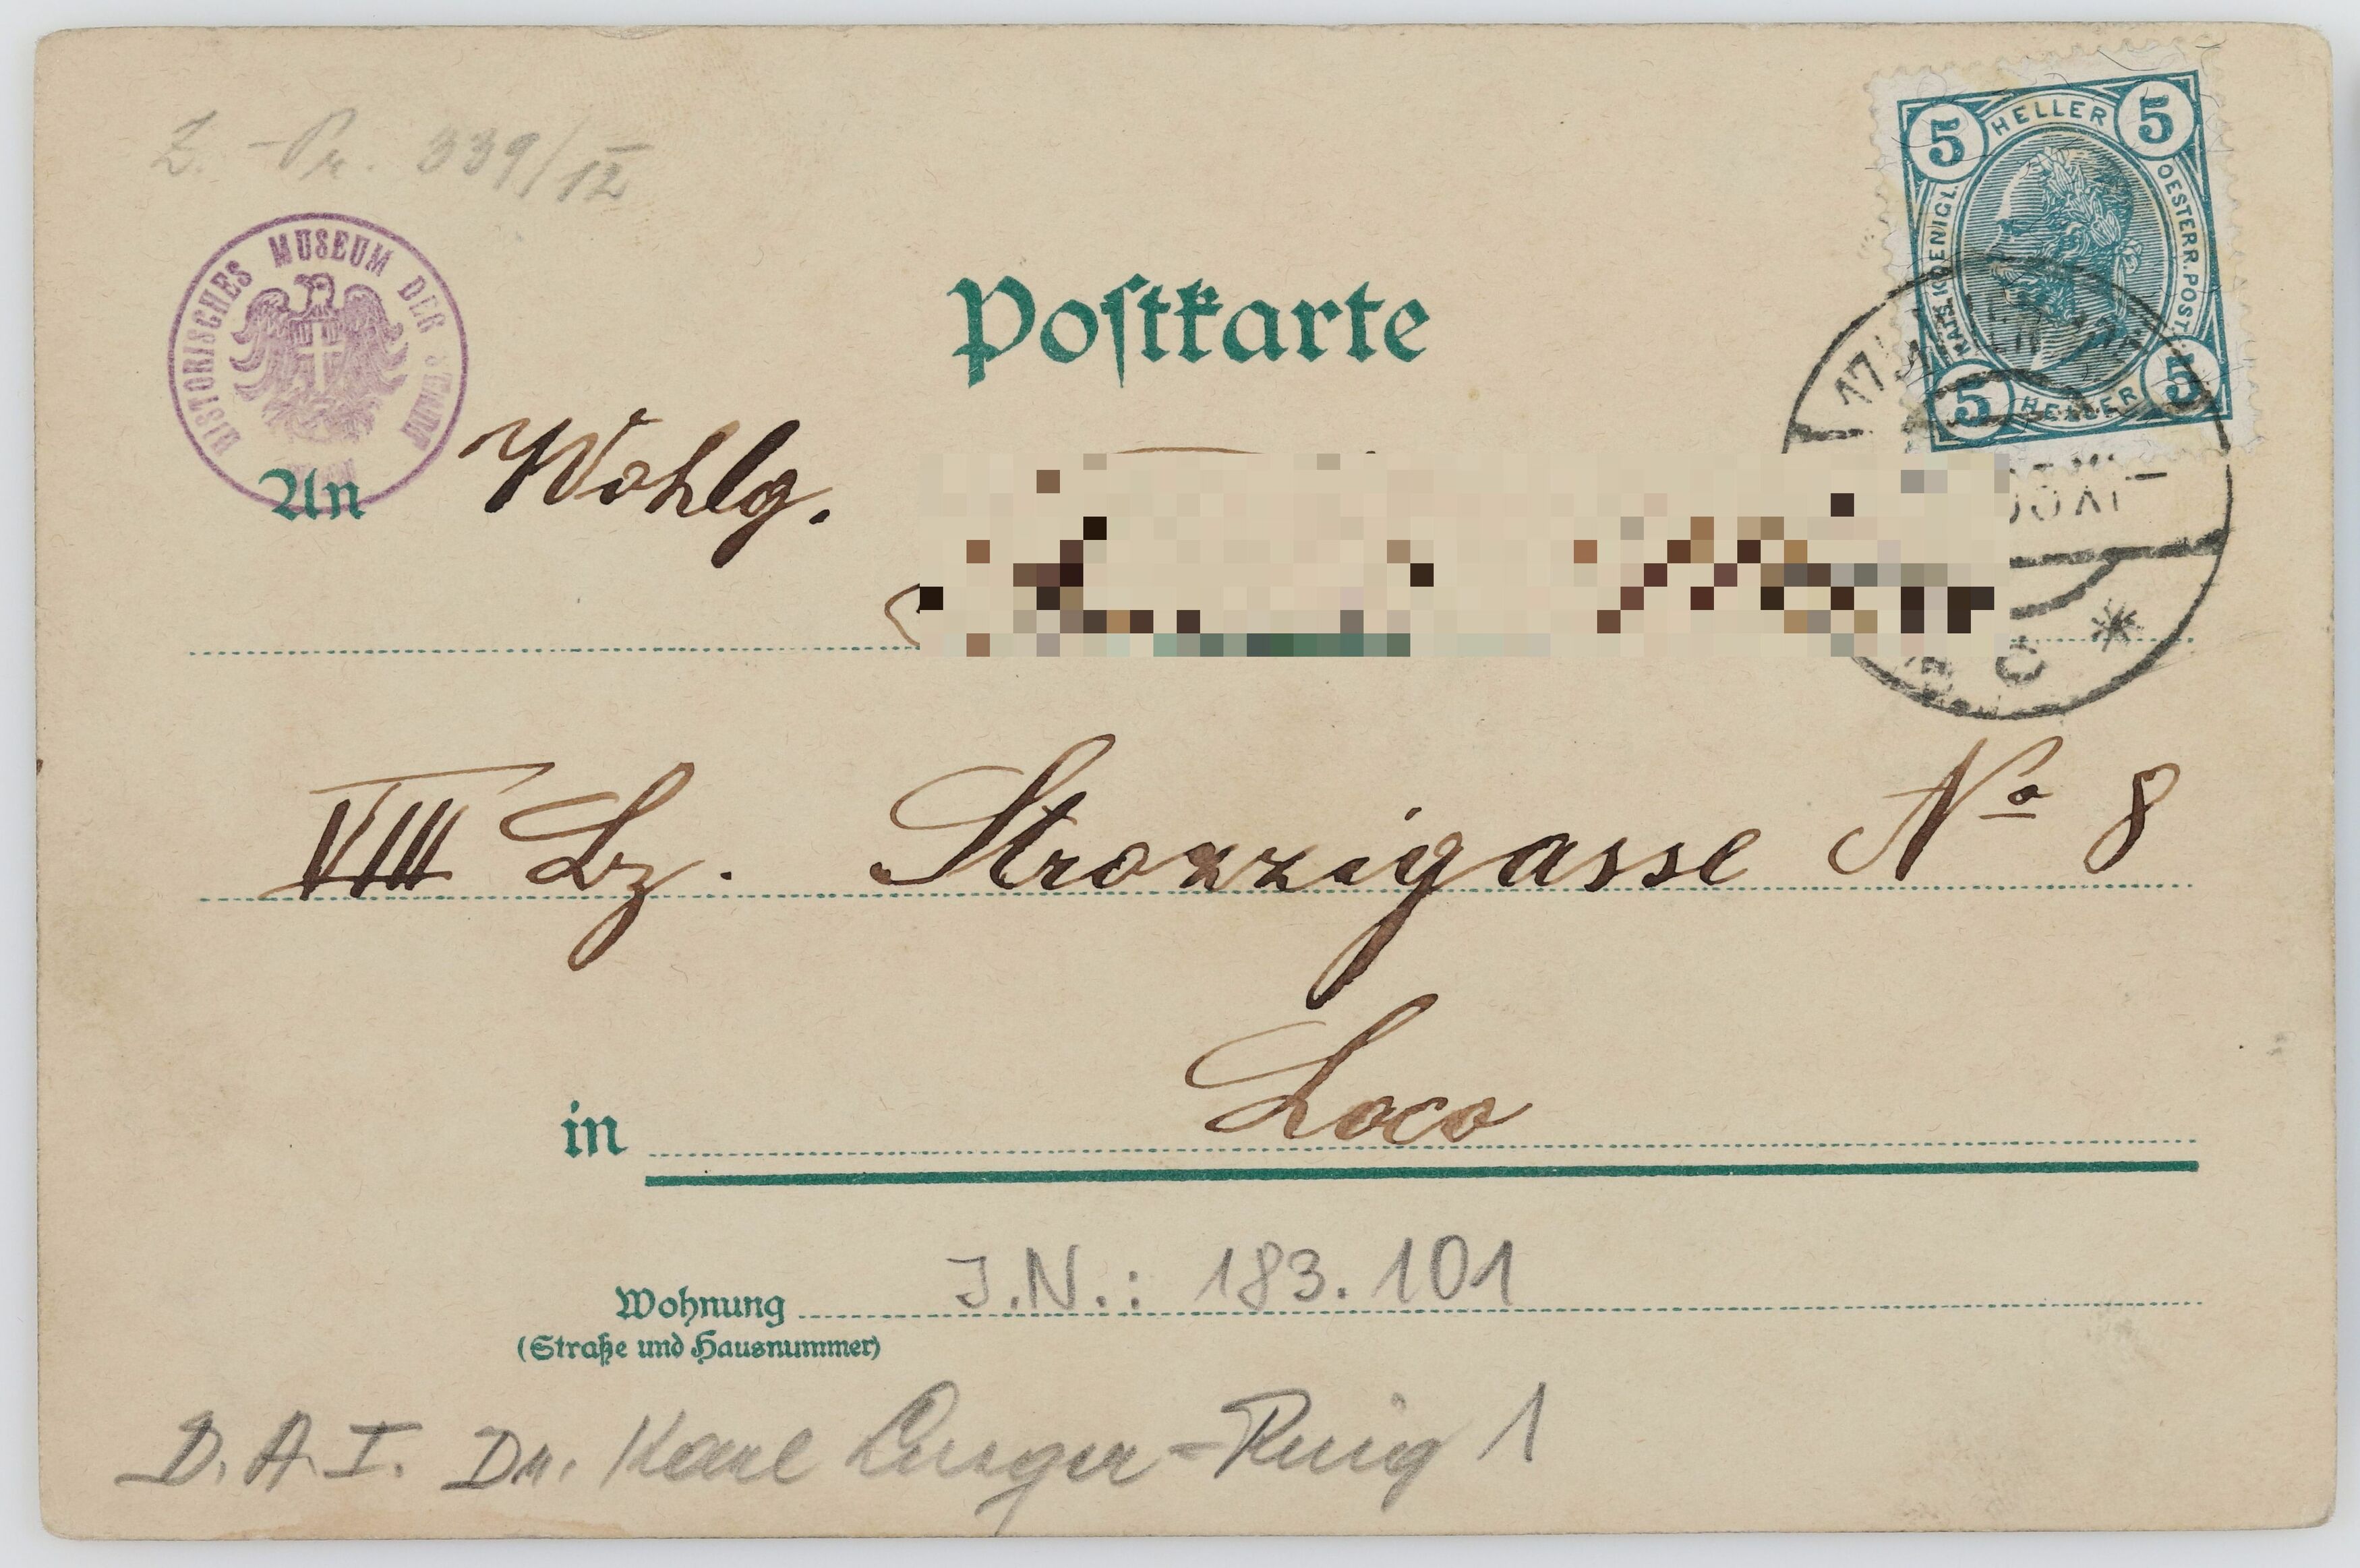 Z. Pr. 339/12
HISTORISCHES MUSEUM DER STADT
5 HELLER 5
KAIS. KOENIGL. OESTERR. POST.
5 HELLER 5
17/1 WIEN
Postkarte
An Wohlg.
VIII Lz. Strozzigasse No 8
in Loco
J.N.: 183.101
Wohnung
(Straße und Hausnummer)
D. A. I. Dr. Karl Lueger-Ring 1